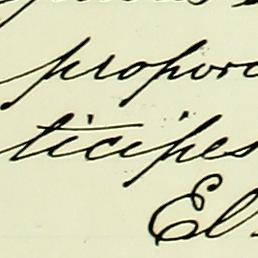 proporc
ticipes
El